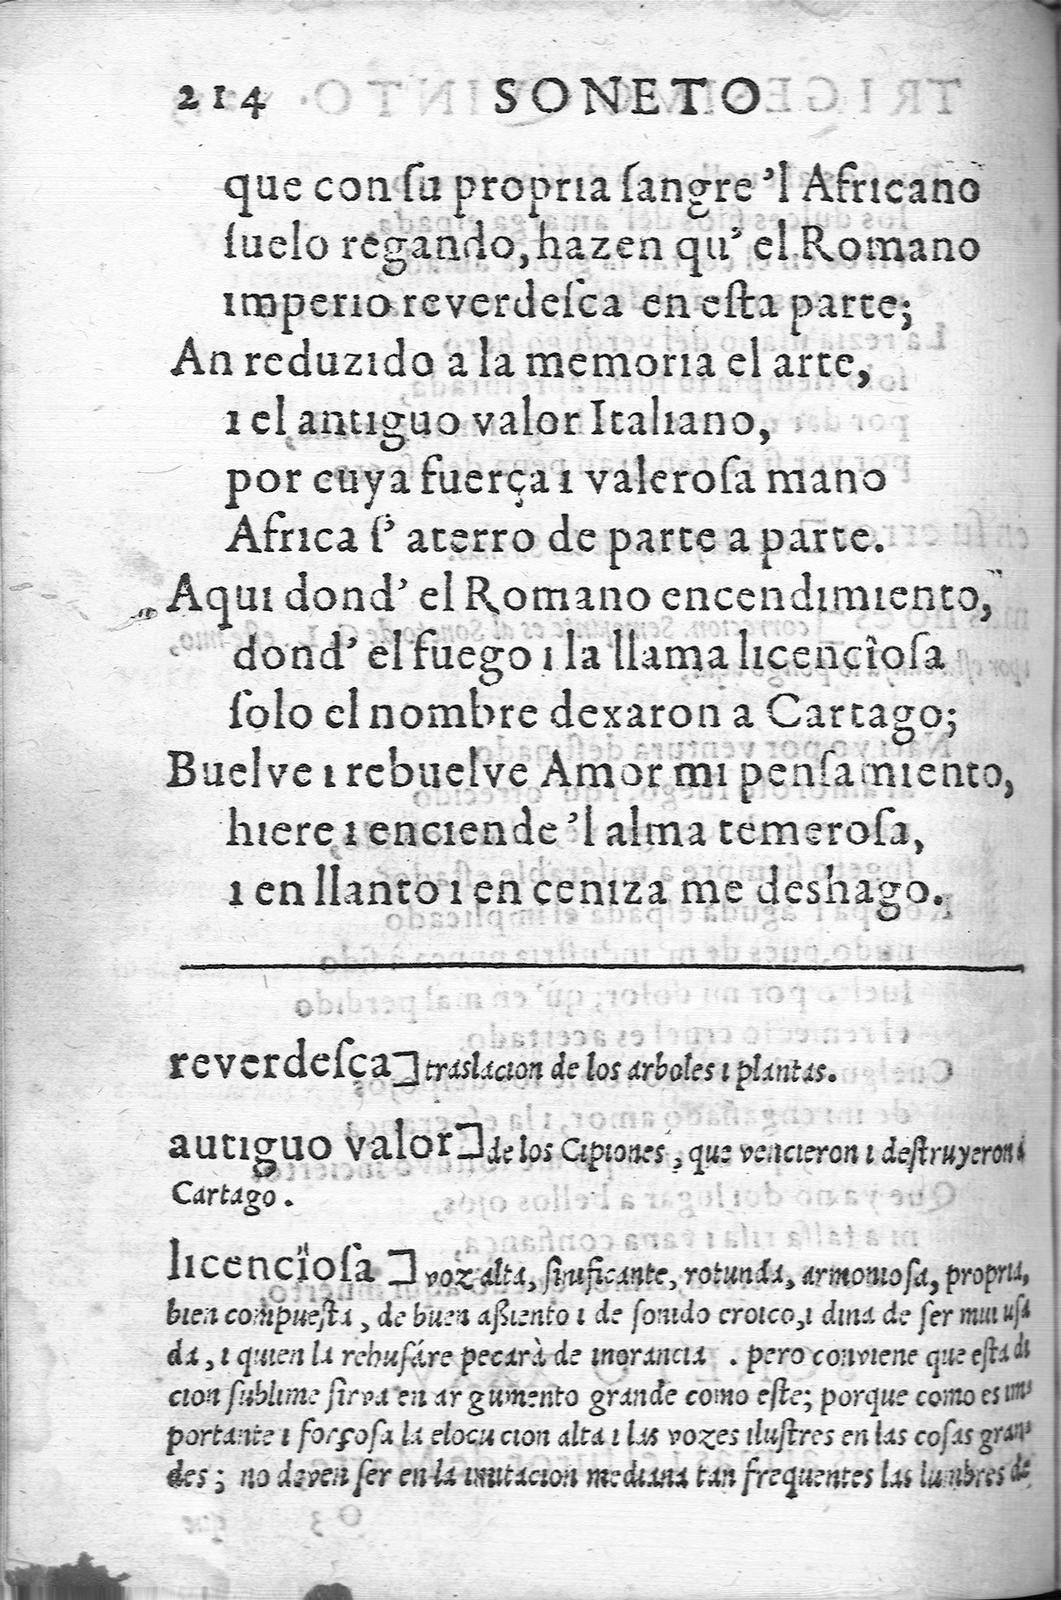 214 SONETO
que con ſu propria ſangre 'l Africano
ſuelo regando, hazen qu' el Romano
imperio reverdeſca en eſta parte;
An reduzido a la memoria el arte,
ı el antiguo valor Italiano,
por cuya fuerça ı valeroſa mano
Africa ſ' aterro de parte a parte.
Aqui dond' el Romano encendimiento,
dond' el fuego ı la llama licencïoſa
ſolo el nombre dexaron a Cartago;
Buelve ı rebuelve Amor mi penſamiento,
hiere ı enciende 'l alma temeroſa,
ı en llanto ı en ceniza me deshago.
reverdeſca] traslacion de los arboles ı plantas.
autiguo valor] de los Cipiones, que vencieron ı deſtruyeron à
Cartago.
licencïoſa] voz alta, ſinificante, rotunda, armonioſa, propria,
bien compueſta, de buen aſsiento ı de ſonido eroico, ı dina de ſer mui uſa
da, ı quien la rehuſáre pecarà de inorancia. pero conviene que eſta di
cion ſublime ſirva en argumento grande como eſte; porque como es im-
portante ı forçoſa la elocucion alta ı las vozes iluſtres en las coſas gran-
des; no deven ſer en la imitacion mediana tan frequentes las lumbres de